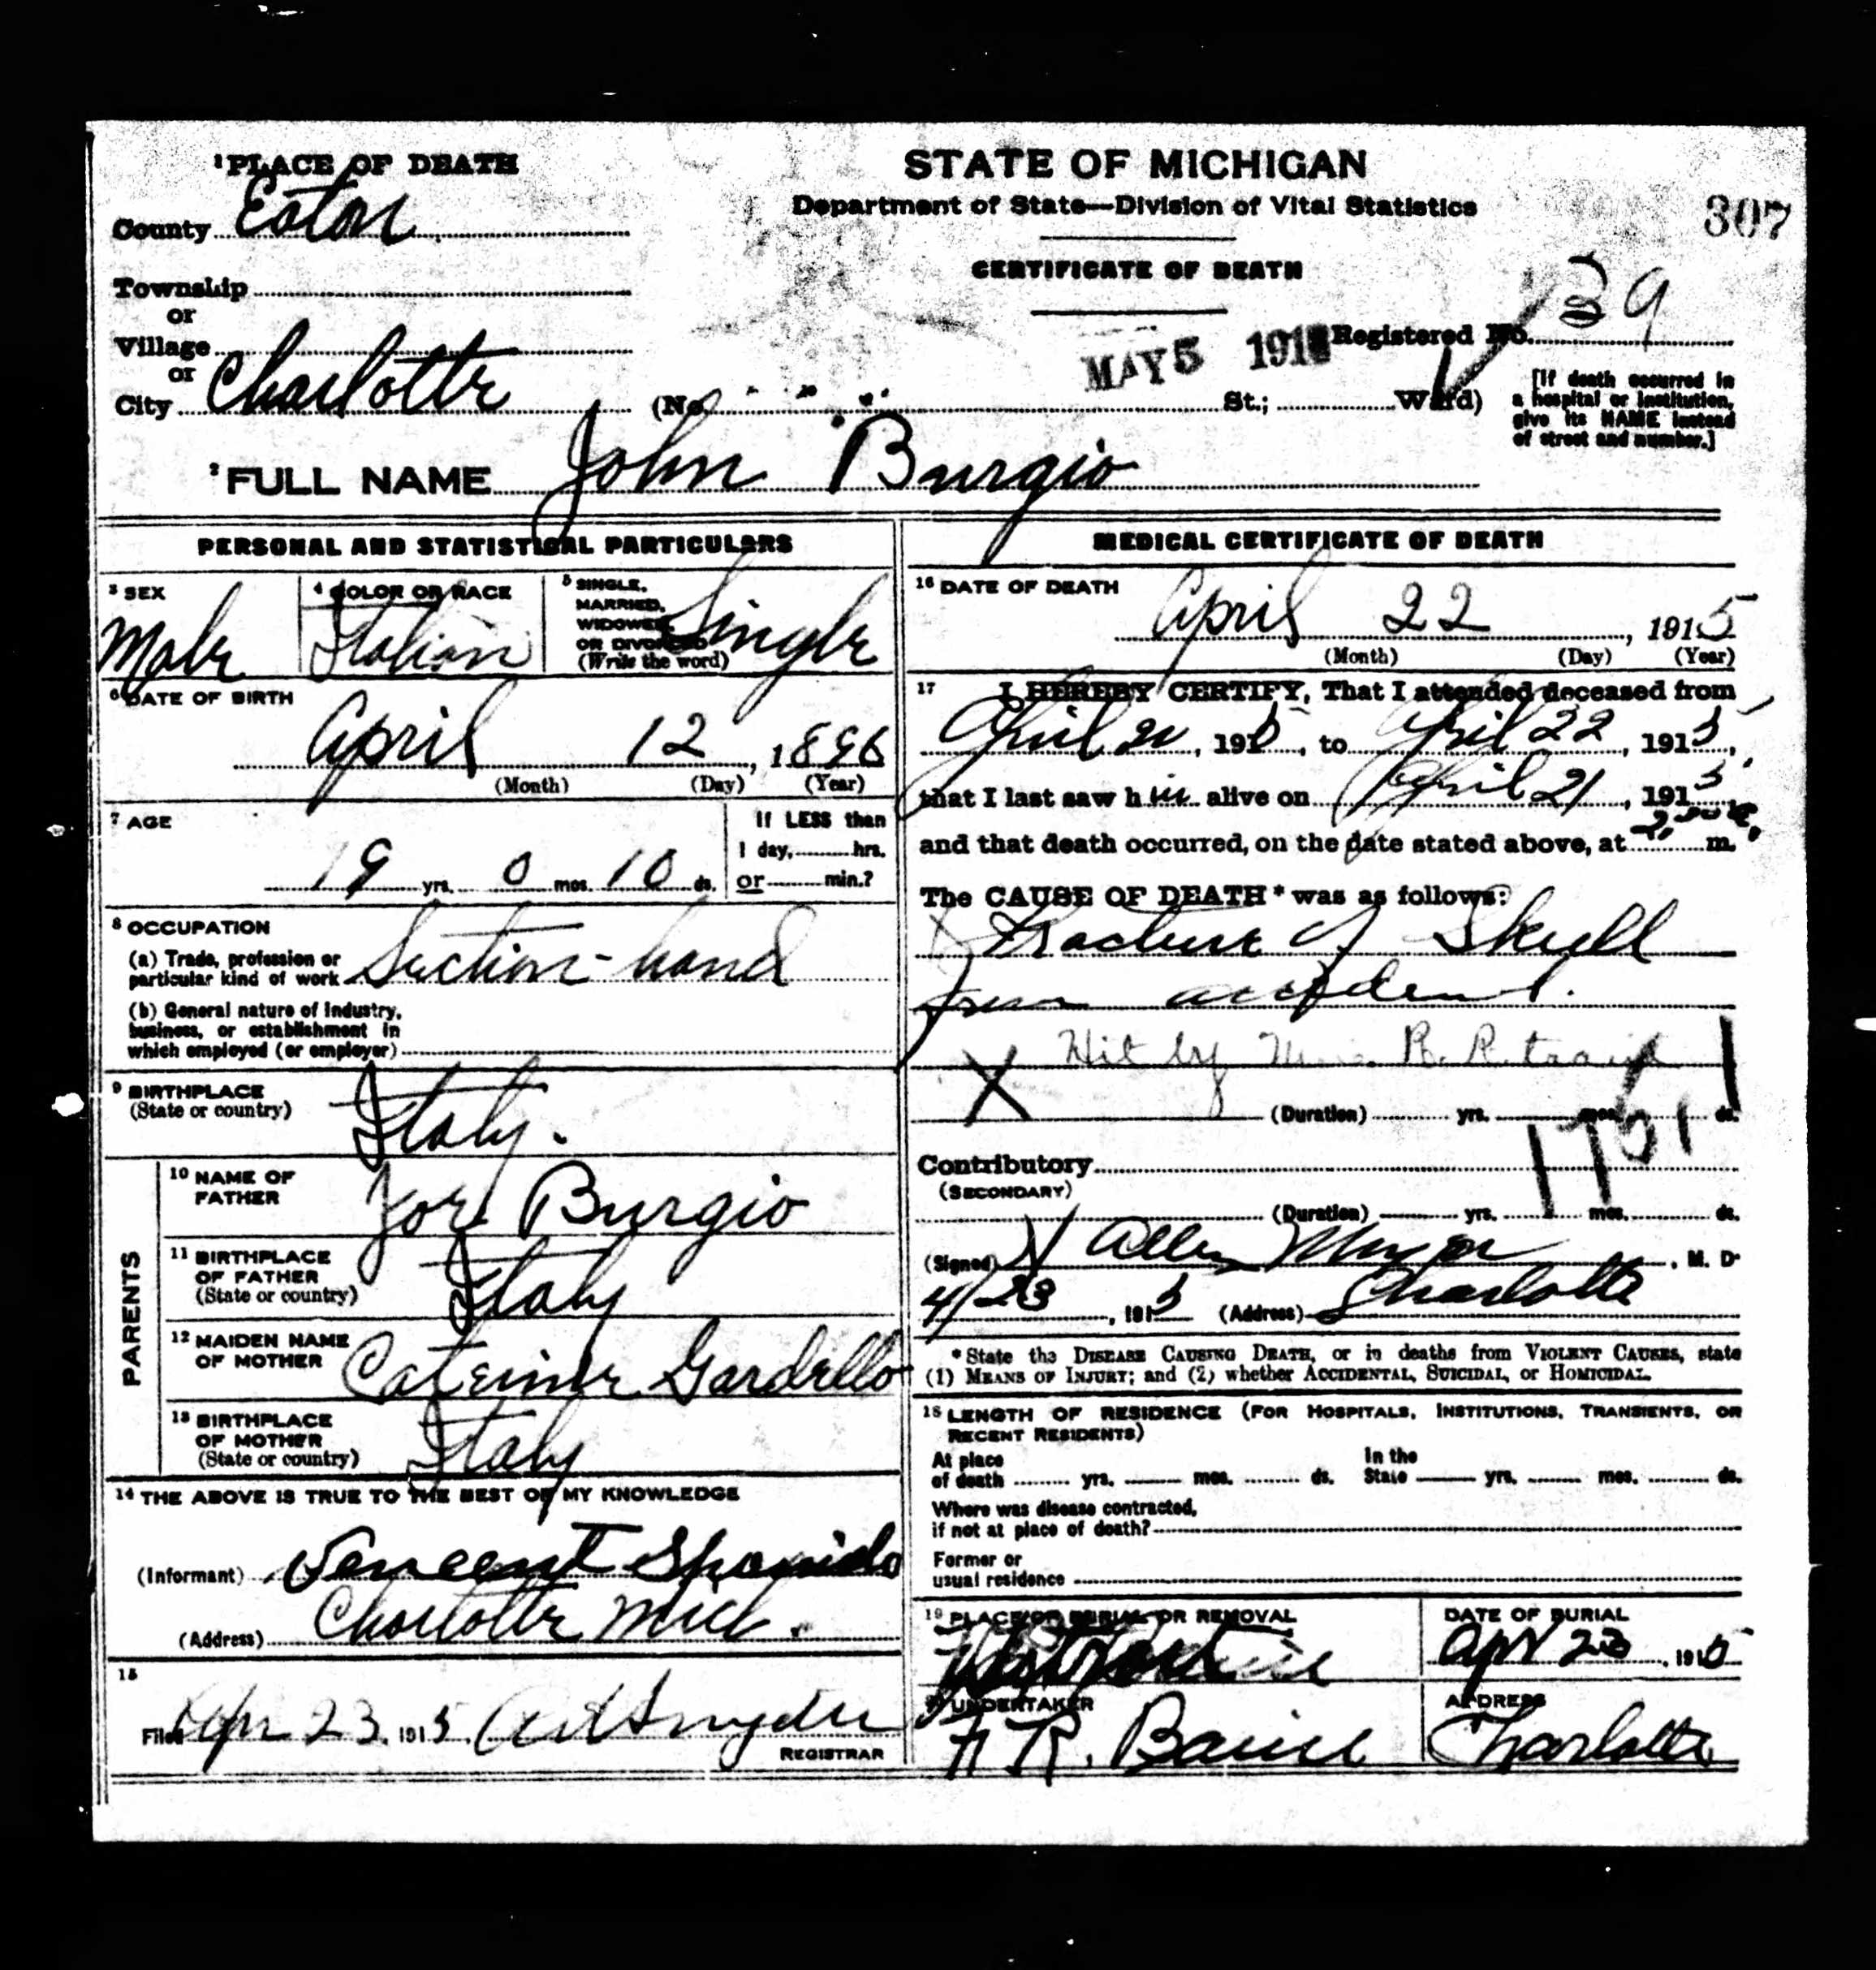 1 PLACE OF DEATH
County Eaton
Township
or
Village
or
City Charlotte
STATE OF MICHIGAN
Department of State—Division of Vital Statistics
307
CERTIFICATE OF DEATH
MAY 5 191
Registered No. 39
(No. St.; Ward)
[If death occurred in
a hospital or institution,
give its NAME instead
of street and number.]
2 FULL NAME John Burgio
PERSONAL AND STATISTICAL PARTICULARS
3 SEX
Male
4 COLOR OR RACE
Italian
5 SINGLE,
MARRIED,
WIDOWED,
OR DIVORCED
(Write the word)
Single
6 DATE OF BIRTH
April 12, 1896
(Month) (Day) (Year)
7 AGE
19 yrs. 0 mos. 10 ds.
If LESS than
1 day, hrs.
or min.?
8 OCCUPATION
(a) Trade, profession or
particular kind of work Section-hand
(b) General nature of industry,
business, or establishment in
which employed (or employer)
9 BIRTHPLACE
(State or country)
Italy.
PARENTS
10 NAME OF
FATHER
Joe Burgio
11 BIRTHPLACE
OF FATHER
(State or country)
Italy
12 MAIDEN NAME
OF MOTHER
Gardello
13 BIRTHPLACE
OF MOTHER
(State or country)
Italy
14 THE ABOVE IS TRUE TO THE BEST OF MY KNOWLEDGE
(Informant) Vencent
(Address) Charlotte Mich.
15
Filed Apr 23, 1915. Snyder
REGISTRAR
MEDICAL CERTIFICATE OF DEATH
16 DATE OF DEATH
April 22, 1915
(Month) (Day) (Year)
17 I HEREBY CERTIFY, That I attended deceased from
April, 1915, to April 22, 1915,
that I last saw him alive on April 21, 1915
and that death occurred, on the date stated above, at m.
The CAUSE OF DEATH* was as follows:
Fracture of Skull
from accident.
Hit by R. R. train
X (Duration) yrs. mos. ds.
Contributory
(SECONDARY)
(Duration) yrs. mos. ds.
(Signed) Allen, M. D.
4/23, 1915 (Address) Charlotte
*State the DISEASE CAUSING DEATH, or in deaths from VIOLENT CAUSES, state
(1) MEANS OF INJURY; and (2) whether ACCIDENTAL, SUICIDAL, or HOMICIDAL.
18 LENGTH OF RESIDENCE (FOR HOSPITALS, INSTITUTIONS, TRANSIENTS, OR
RECENT RESIDENTS)
At place
of death yrs. mos. ds.
In the
State yrs. mos. ds.
Where was disease contracted,
if not at place of death?
Former or
usual residence
19 PLACE OF BURIAL OR REMOVAL
DATE OF BURIAL
Apr 23, 1915
20 UNDERTAKER
ADDRESS
Charlotte